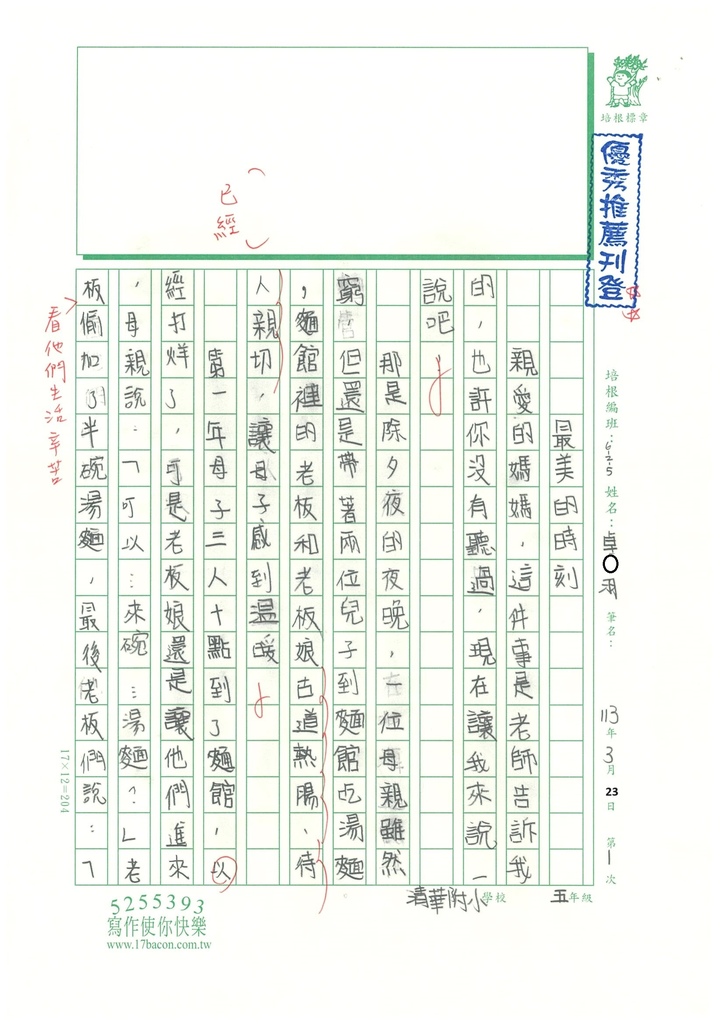 培根標章
優秀推薦刊登
培根編班：625 姓名：卓〇羽 筆名： 113年3月23日 第1次
最美的時刻
親愛的媽媽，這件事是老師告訴我
的，也許你沒有聽過，現在讓我來說一
說吧！
那是除夕夜的夜晚，一位母親雖然
窮，但還是帶著兩位兒子到麵館吃湯麵
，麵館裡的老板和老板娘古道熱腸、待
人親切，讓母子感到溫暖。
第一年母子三人十點到了麵館，以
經打烊了，可是老板娘還是讓他們進來
，母親說：「可以…來碗…湯麵？」老
板偷加了半碗湯麵，最後老板們說：「
已經
看他們生活辛苦
17×12=204
清華附小學校 五年級
5255393
寫作使你快樂
www.17bacon.com.tw